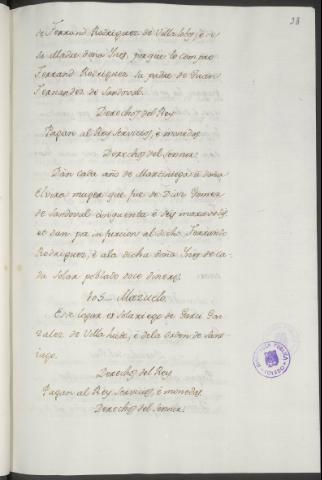 38
de Ferrand Rodriguez de Villalobos, è de
sa Madre doña Ines, porque lo compro
Ferrand Rodriguez su padre de Juan
Fernandez de Sandoval.
Derechos del Rey
Pagan al Rey Servicios, è monedas.
Derechos del Sennor.
Dan cada año de Martiniega à doña
Elvira muger que fue de Diar Gomez
de Sandoval cinquenta è seis maravedis,
et dan por infurcion al dicho Ferrando
Rodriguez, è à la dicha doña Ines de ca-
da Solar poblado doce dineros.
105 Mazuelo.
Este logar es Solariego de Garci Gon-
zalez de Villa, è dela orden de Sant-
iago.
Derechos del Rey
Pagan al Rey Servicios, è monedas.
Derechos del Sennor.
BIBLIOTECA PUBLICA
TOLEDO